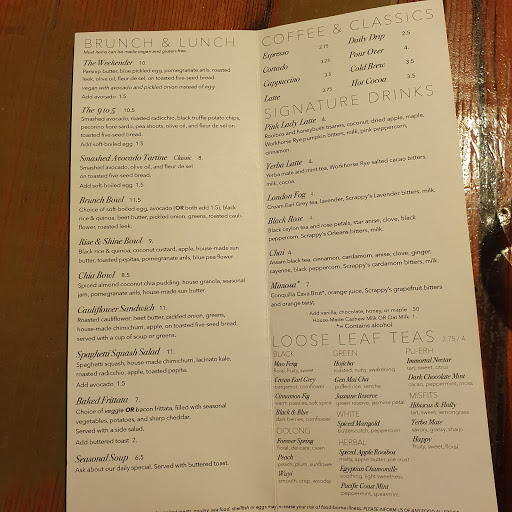 BRUNCH & LUNCH
Most items can be made vegan and gluten-free.
The Weekender 10.
Parsnip butter, blue pickled egg, pomegranate arils, roasted
leek, olive oil, fleur de sel, on toasted five-seed bread
vegan with avocado and pickled onion instead of egg
Add avocado 1.5
The 9 to 5 10.5
Smashed avocado, roasted radicchio, black truffle potato chips,
pecorino fiore sardo, pea shoots, olive oil, and fleur de sel on
toasted five-seed bread.
Add soft-boiled egg 1.5
Smashed Avocado Tartine Classic 8.
Smashed avocado, olive oil, and fleur de sel
on toasted five-seed bread.
Add soft-boiled egg 1.5
Brunch Bowl 11.5
Choice of soft-boiled egg, avocado (OR both add 1.5), black
rice & quinoa, beet butter, pickled onion, greens, roasted cauli-
flower, roasted leek.
Rise & Shine Bowl 9.
Black rice & quinoa, coconut custard, apple, house-made sun
butter, toasted pepitas, pomegranate arils, blue pea flower
Chia Bowl 8.5
Spiced almond coconut chia pudding, house granola, seasonal
jam, pomegranate arils, house-made sun butter.
Cauliflower Sandwich 11.
Roasted cauliflower, beet butter, pickled onion, greens,
house-made chimichurri, apple, on toasted five-seed bread,
served with a cup of soup or greens.
Spaghetti Squash Salad 11.
Spaghetti squash, house-made chimichurri, lacinato kale,
roasted radicchio, apple, toasted pepita.
Add avocado 1.5
Baked Frittata 7.
Choice of veggie OR bacon frittata, filled with seasonal
vegetables, potatoes, and sharp cheddar.
Served with a side salad.
Add buttered toast 2.
Seasonal Soup 6.5
Ask about our daily special. Served with buttered toast.
COFFEE & CLASSICS
Espresso 2.75 Daily Drip 2.5
Cortado 3.25 Pour Over 4.
Cappuccino 3.5 Cold Brew 3.5
Latte 3.75 Hot Cocoa 3.5
SIGNATURE DRINKS
Pink Lady Latte 4.
Rooibos and honeybush tisanes, coconut, dried apple, maple,
Workhorse Rye pumpkin bitters, milk, pink peppercorn,
cinnamon.
Yerba Latte 4.
Yerba mate and mint tea, Workhorse Rye salted cacao bitters,
milk, cocoa.
London Fog 4.
Cream Earl Grey tea, lavender, Scrappy's Lavender bitters, milk.
Black Rose 4.
Black ceylon tea and rose petals, star anise, clove, black
peppercorn, Scrappy's Orleans bitters, milk.
Chai 4.
Assam black tea, cinnamon, cardamom, anise, clove, ginger,
cayenne, black peppercorn, Scrappy's cardamom bitters, milk.
Mimosa* 7.
Conquilla Cava Brut*, orange juice, Scrappy's grapefruit bitters
and orange twist.
Add vanilla, chocolate, honey, or maple .50
House-Made Cashew Milk OR Oat Milk 1
*= Contains alcohol
LOOSE LEAF TEAS 2.75 / 4.
BLACK
Mao Feng
floral, fruity, sweet
Cream Earl Grey
bergamot, cornflower
Cinnamon Fig
warm passion, soft spice
Black & Blue
dark berries, cornflower
OOLONG
Formosa Spring
floral, delicate, clean
Peach
peach, plum, sunflower
Wuyi
smooth, crisp, woodsy
GREEN
Hojicha
roasted, nutty, awakening
Gen Mai Cha
puffed rice, sencha
Jasmine Reserve
green reserve, jasmine petal
WHITE
Spiced Marigold
butterscotch, peppercorn
HERBAL
Spiced Apple Rooibos
malty, apple butter, pie crust
Egyptian Chamomille
soothing, light sweetness
Pacific Coast Mint
peppermint, spearmint
PU-ERH
Immortal Nectar
tart, sweet, citrus
Dark Chocolate Mint
cacao, peppermint, moss
MISFITS
Hibiscus & Holly
tart, sweet, lemongrass
Yerba Mate
savory, grassy, sharp
Happy
fruity, sweet, floral
meats, poultry, seafood, shellfish or eggs may increase your risk of food-borne illness.